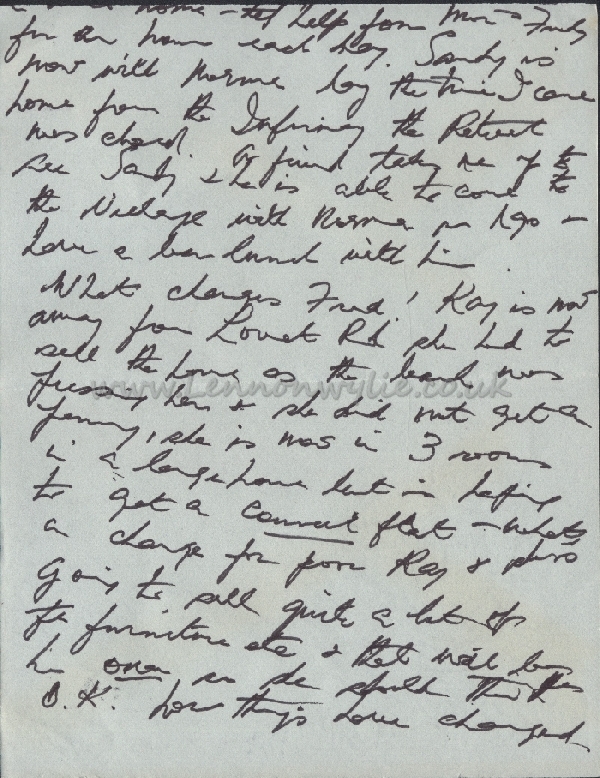 home - help from Mrs
for an hour each day. Sandy is
now with Norma by the time I came
home from the Infirmary the Retreat
was closed. A friend takes me up to
see Sandy & he is able to come to
the Village with Norma &
have a bar lunch with him.
What changes Fred! Kay is now
away from Lovat Rd she had to
sell the house as the bank was
her & she did not get a
penny, she is now in 3 rooms
in a large house but is hoping
to get a council flat - what
a change for poor Kay & she's
going to sell quite a lot of
the furniture etc & that will
own so she should then be
O.K. how things have changed
www.Lennonwylie.co.uk